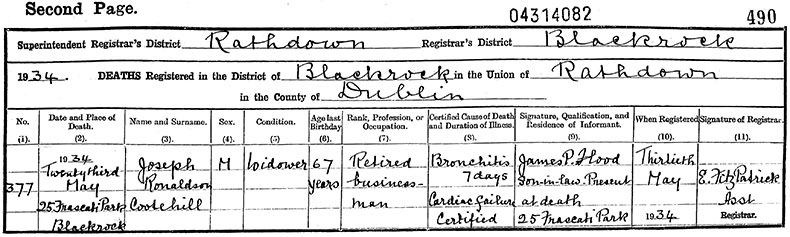 Second Page. 04314082 490
Superintendent Registrar's District Rathdown Registrar's District Blackrock
1934. DEATHS Registered in the District of Blackrock in the Union of Rathdown
in the County of Dublin
No. (1).
Date and Place of Death. (2).
Name and Surname. (3).
Sex. (4).
Condition. (5)
Age last Birthday (6).
Rank, Profession, or Occupation. (7).
Certified Cause of Death and Duration of Illness. (8).
Signature, Qualification, and Residence of Informant. (9).
When Registered (10).
Signature of Registrar. (11).
377
1934
Twenty third
May
25 Frascati Park
Blackrock
Joseph
Ronaldson
Cootehill
M
Widower
67
years
Retired
business-
man
Bronchitis
7 days
Cardiac failure
Certified
James P. Flood
Son-in-law. Present
at death
25 Frascati Park
Thirtieth
May
1934
E. FitzPatrick
Asst
Registrar.